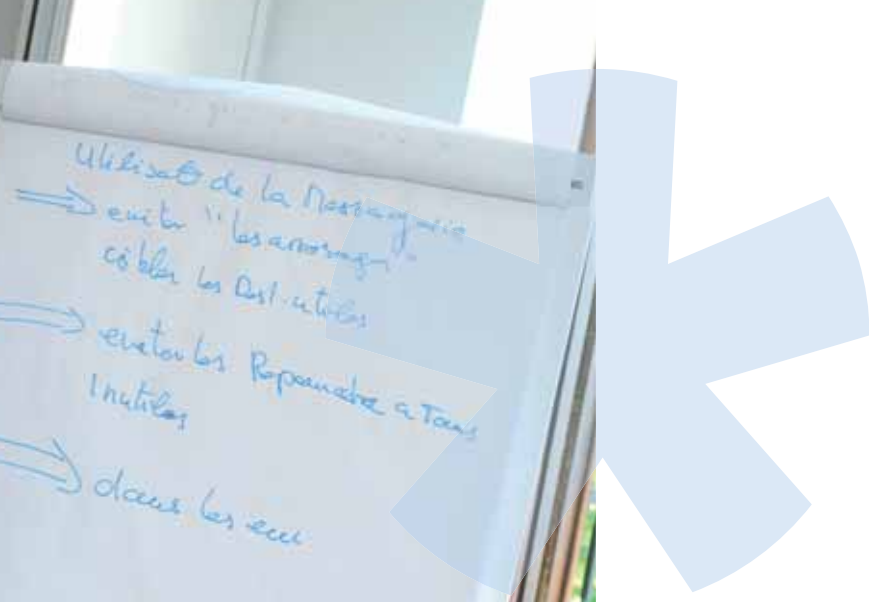 Utilisat° de la Messagerie
⇒ eviter "les arrosages"
cibler les Dest. utiles
⇒ eviter les Repondre a Tous
Inutiles
⇒ dans les